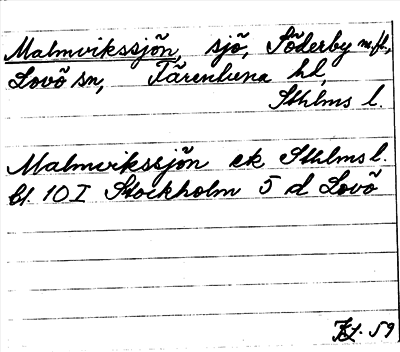 Malmvikssjön, sjö, Söderby m.fl.,
Lovö sn, Färentuna hd,
Sthlms l.
Malmvikssjön ek Sthlms l.
bl. 10 I Stockholm 5 d Lovö
59